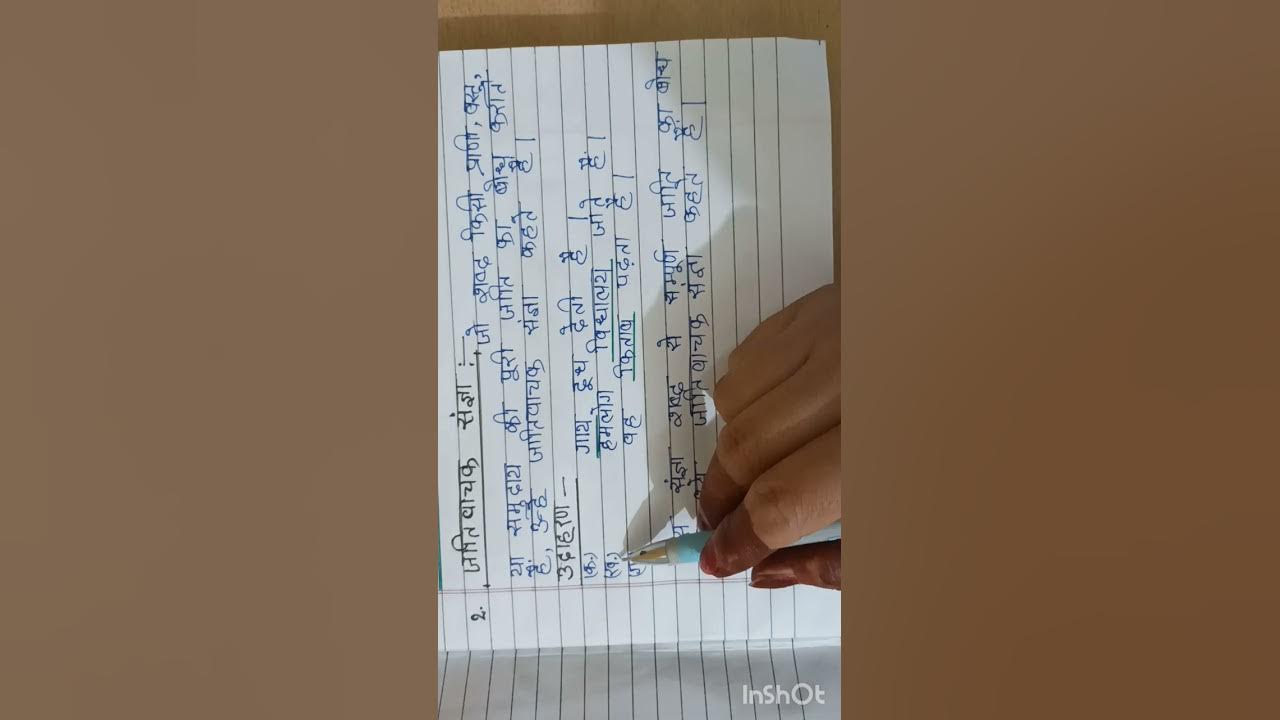 2. जातिवाचक संज्ञा :-
जो शब्द किसी प्राणी, वस्तु,
या समुदाय की पूरी जाति का बोध कराते
हैं, उन्हें जातिवाचक संज्ञा कहते हैं।
उदाहरण —
(क.) गाय दूध देती है।
(ख.) हमलोग विद्यालय जाते हैं।
वह किताब पढ़ता है।
संज्ञा शब्द से सम्पूर्ण जाति का बोध
जातिवाचक संज्ञा कहते हैं।
InShOt